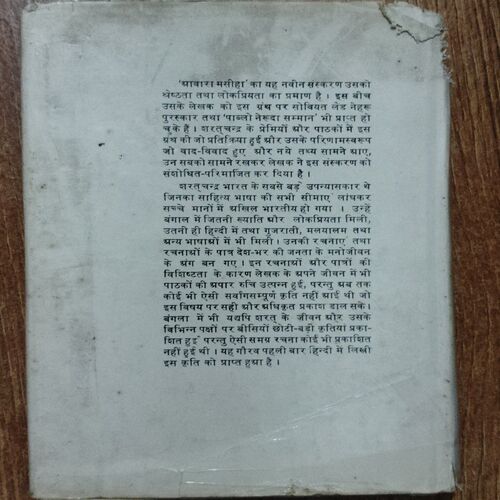 'आवारा मसीहा' का यह नवीन संस्करण उसकी
श्रेष्ठता तथा लोकप्रियता का प्रमाण है । इस बीच
उसके लेखक को इस ग्रंथ पर सोवियत लैंड नेहरू
पुरस्कार तथा 'पाब्लो नेरूदा सम्मान' भी प्राप्त हो
चुके हैं । शरत्चन्द्र के प्रेमियों और पाठकों में इस
ग्रंथ की जो प्रतिक्रिया हुई और उसके परिणामस्वरूप
जो वाद-विवाद हुए और नये तथ्य सामने आए,
उन सबको सामने रखकर लेखक ने इस संस्करण को
संशोधित-परिमार्जित कर दिया है ।
शरत्चन्द्र भारत के सबसे बड़े उपन्यासकार थे
जिनका साहित्य भाषा की सभी सीमाएं लांघकर
सच्चे मानों में अखिल भारतीय हो गया । उन्हें
बंगाल में जितनी ख्याति और लोकप्रियता मिली,
उतनी ही हिन्दी में तथा गुजराती, मलयालम तथा
अन्य भाषाओं में भी मिली । उनकी रचनाएं तथा
रचनाओं के पात्र देश-भर की जनता के मनोजीवन
के अंग बन गए । इन रचनाओं और पात्रों की
विशिष्टता के कारण लेखक के अपने जीवन में भी
पाठकों की अपार रुचि उत्पन्न हुई, परन्तु अब तक
कोई भी ऐसी सर्वांगसम्पूर्ण कृति नहीं आई थी जो
इस विषय पर सही और अधिकृत प्रकाश डाल सके।
बंगला में भी यद्यपि शरत् के जीवन और उसके
विभिन्न पक्षों पर बीसियों छोटी-बड़ी कृतियां प्रका-
शित हुईं परन्तु ऐसी समग्र रचना कोई भी प्रकाशित
नहीं हुई थी । यह गौरव पहली बार हिन्दी में लिखी
इस कृति को प्राप्त हुआ है ।